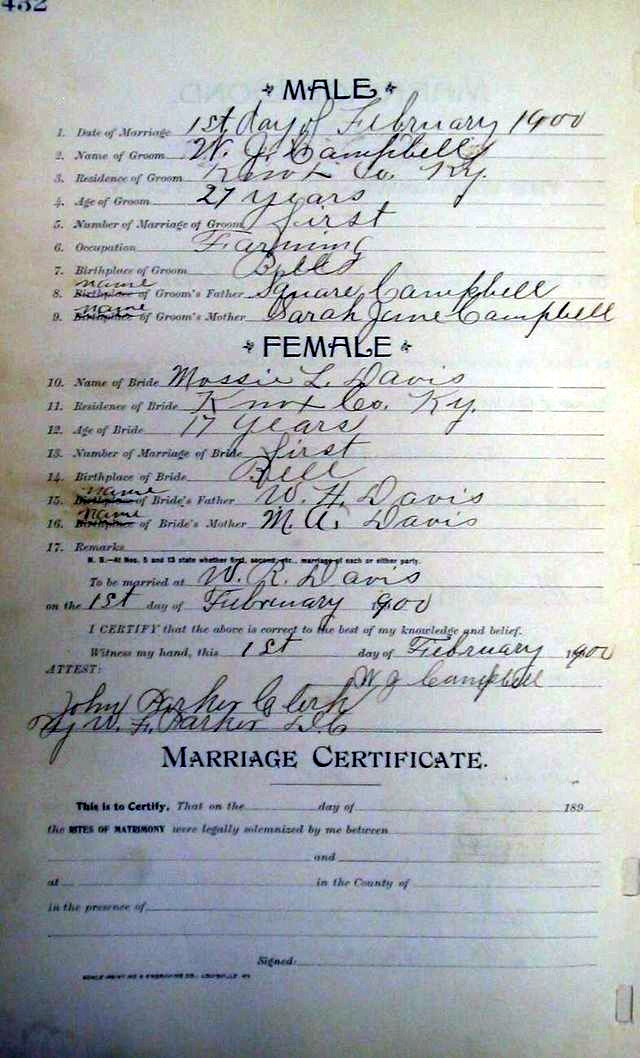 432
MALE
1. Date of Marriage 1st day of February 1900
2. Name of Groom W. J. Campbell
3. Residence of Groom Knox Co. Ky.
4. Age of Groom 27 years
5. Number of Marriage of Groom first
6. Occupation Farming
7. Birthplace of Groom Bell
8. Birthplace name of Groom's Father Square Campbell
9. Birthplace name of Groom's Mother Sarah Jane Campbell
FEMALE
10. Name of Bride Mossie L. Davis
11. Residence of Bride Knox Co. Ky.
12. Age of Bride 17 years
13. Number of Marriage of Bride first
14. Birthplace of Bride Bell
15. Birthplace name of Bride's Father W. H. Davis
16. Birthplace name of Bride's Mother M. A. Davis
17. Remarks
N. B.—At Nos. 5 and 13 state whether first, second, etc., marriage of each or either party.
To be married at W. R. Davis
on the 1st day of February 1900
I CERTIFY that the above is correct to the best of my knowledge and belief.
Witness my hand, this 1st day of February 1900
ATTEST: W J Campbell
John Parker Clerk
By W. F. Parker D.C
MARRIAGE CERTIFICATE.
This is to Certify, That on the day of 189
the RITES OF MATRIMONY were legally solemnized by me between
and
at in the County of
in the presence of
Signed: